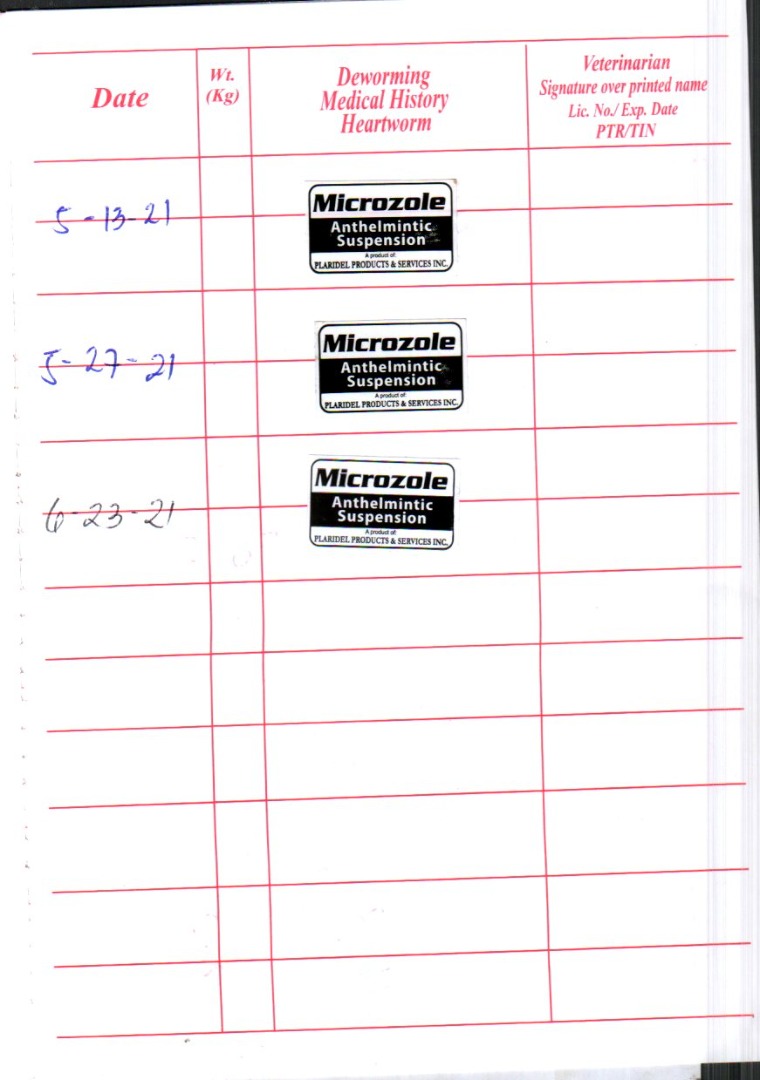 Date
Wt.
(Kg)
Deworming
Medical History
Heartworm
Veterinarian
Signature over printed name
Lic. No./ Exp. Date
PTR/TIN
5-13-21
Microzole
Anthelmintic
Suspension
A product of:
PLARIDEL PRODUCTS & SERVICES INC.
5-27-21
Microzole
Anthelmintic
Suspension
A product of:
PLARIDEL PRODUCTS & SERVICES INC.
6-23-21
Microzole
Anthelmintic
Suspension
A product of:
PLARIDEL PRODUCTS & SERVICES INC.